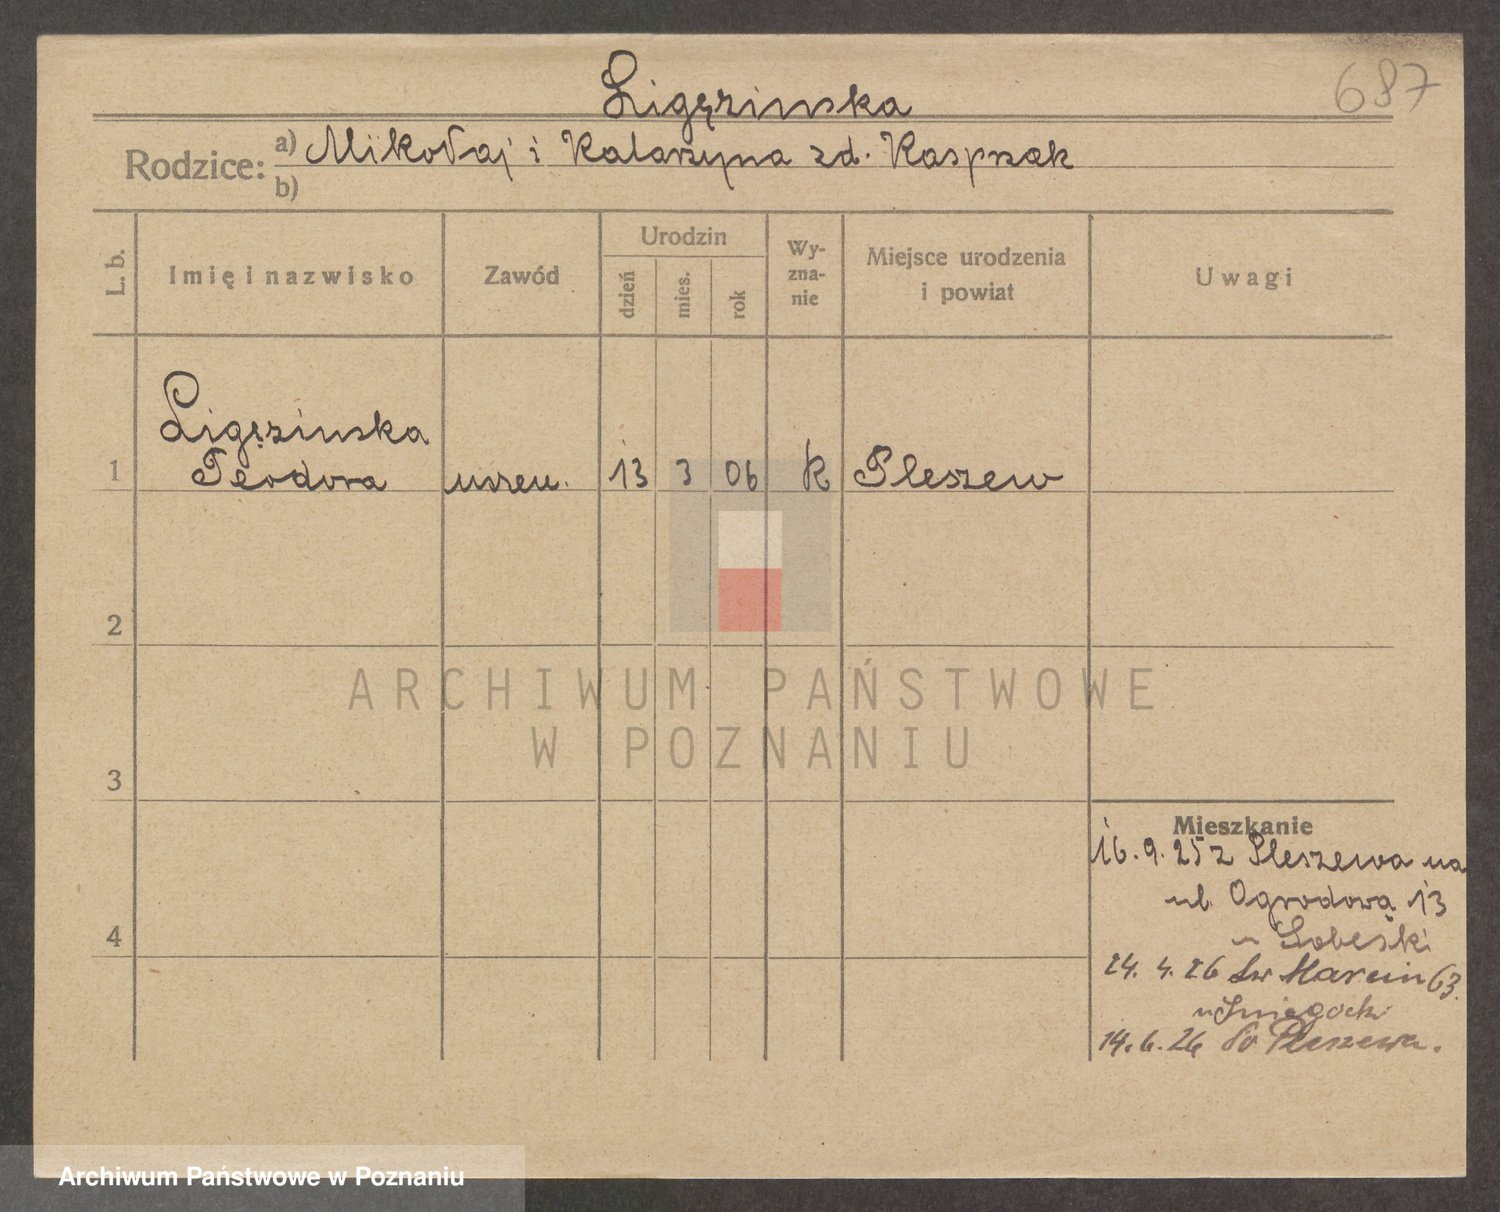 687
Ligęzinska
Rodzice: a) Mikołaj i Katarzyna zd. Kasprzak
b)
L. b.
Imię i nazwisko
Zawód
Urodzin
dzień
mies.
rok
Wy-
zna-
nie
Miejsce urodzenia
i powiat
Uwagi
Ligęzinska
1 Teodora uczen. 13 3 06 k Pleszew
2
3
4
Mieszkanie
16. 9. 25 z Pleszewa na
ul. Ogrodową 13
u Sobeski
24. 4. 26 Św Marcin 63.
u Śniegocki
14. 6. 26 do Pleszewa.
ARCHIWUM PAŃSTWOWE
W POZNANIU
Archiwum Państwowe w Poznaniu